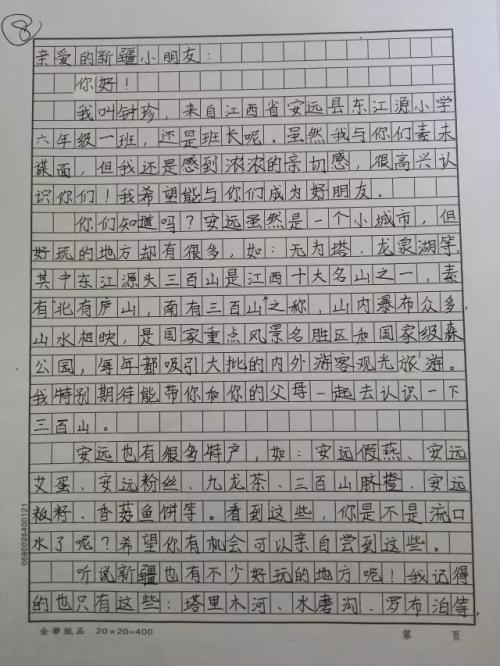 8
亲爱的新疆小朋友：
你好！
我叫钟珍，来自江西省安远县东江源小学
六年级一班，还是班长呢。虽然我与你们素未
谋面，但我还是感到浓浓的亲切感，很高兴认
识你们！我希望能与你们成为好朋友。
你们知道吗？安远虽然是一个小城市，但
好玩的地方却有很多，如：无为塔、龙泉湖等，
其中东江源头三百山是江西十大名山之一，素
有“北有庐山，南有三百山”之称，山内瀑布众多，
山水相映，是国家重点风景名胜区和国家级森
公园，每年都吸引大批的内外游客观光旅游。
我特别期待能带你和你的父母一起去认识一下
三百山。
安远也有很多特产，如：安远假燕、安远
艾蛋、安远粉丝、九龙茶、三百山脐橙、安远
板籽、香菇鱼饼等。看到这些，你是不是流口
水了呢？希望你有机会可以亲自尝到这些。
听说新疆也有不少好玩的地方呢！我记得
的也只有这些：塔里木河、水磨沟、罗布泊等，
0680026400121
金華紙品 20×20=400 第 页